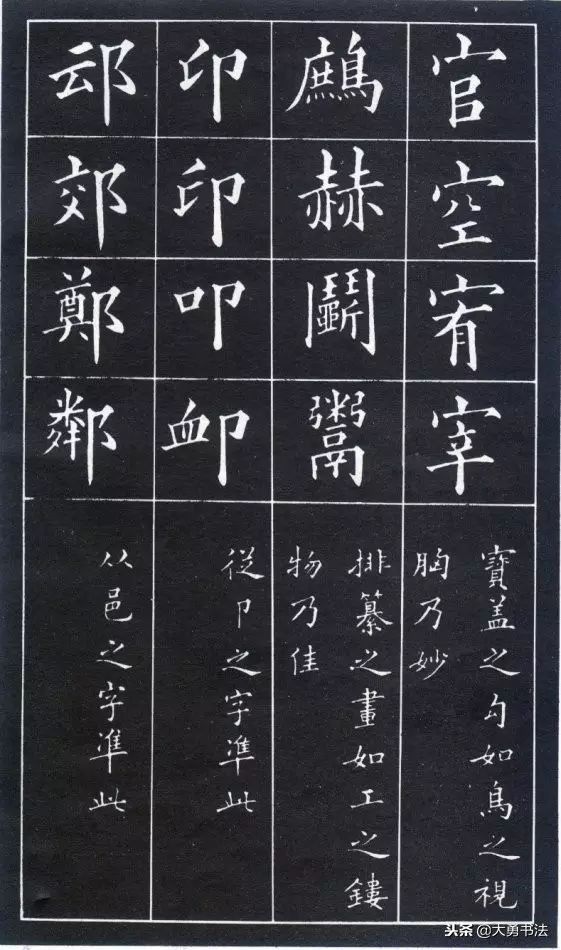 官空宥宰
寶盖之勾如鳥之視
胸乃妙
鷓赫鬭鬻
排纂之畫如工之鏤
物乃佳
印印叩卹
從卩之字準此
䢵郊鄭鄰
从邑之字準此
头条 @大勇书法